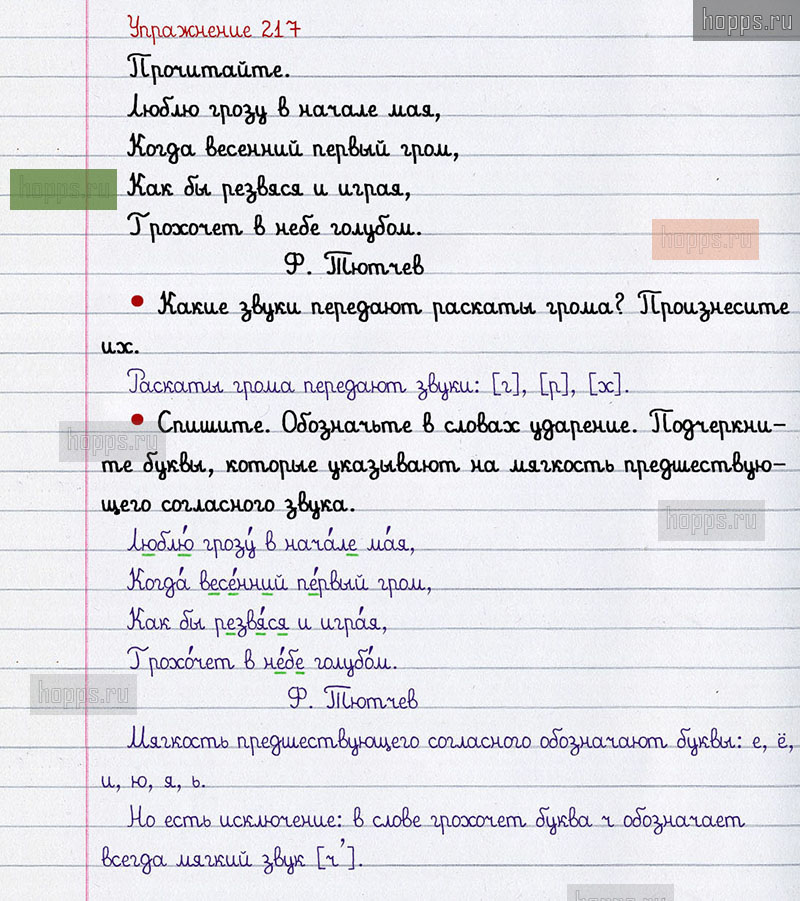 hopps.ru
Упражнение 217
Прочитайте.
Люблю грозу в начале мая,
Когда весенний первый гром,
hopps.ru
Как бы резвяся и играя,
Грохочет в небе голубом.
hopps.ru
Ф. Тютчев
• Какие звуки передают раскаты грома? Произнесите
их.
Раскаты грома передают звуки: [г], [р], [х].
hopps.ru
• Спишите. Обозначьте в словах ударение. Подчеркни-
те буквы, которые указывают на мягкость предшествую-
щего согласного звука.
hopps.ru
Люблю́ грозу́ в нача́ле ма́я,
Когда́ весе́нний пе́рвый гром,
Как бы резвя́ся и игра́я,
Грохо́чет в не́бе голубо́м.
hopps.ru
Ф. Тютчев
Мягкость предшествующего согласного обозначают буквы: е, ё,
и, ю, я, ь.
Но есть исключение: в слове грохочет буква ч обозначает
всегда мягкий звук [ч’].
hopps.ru